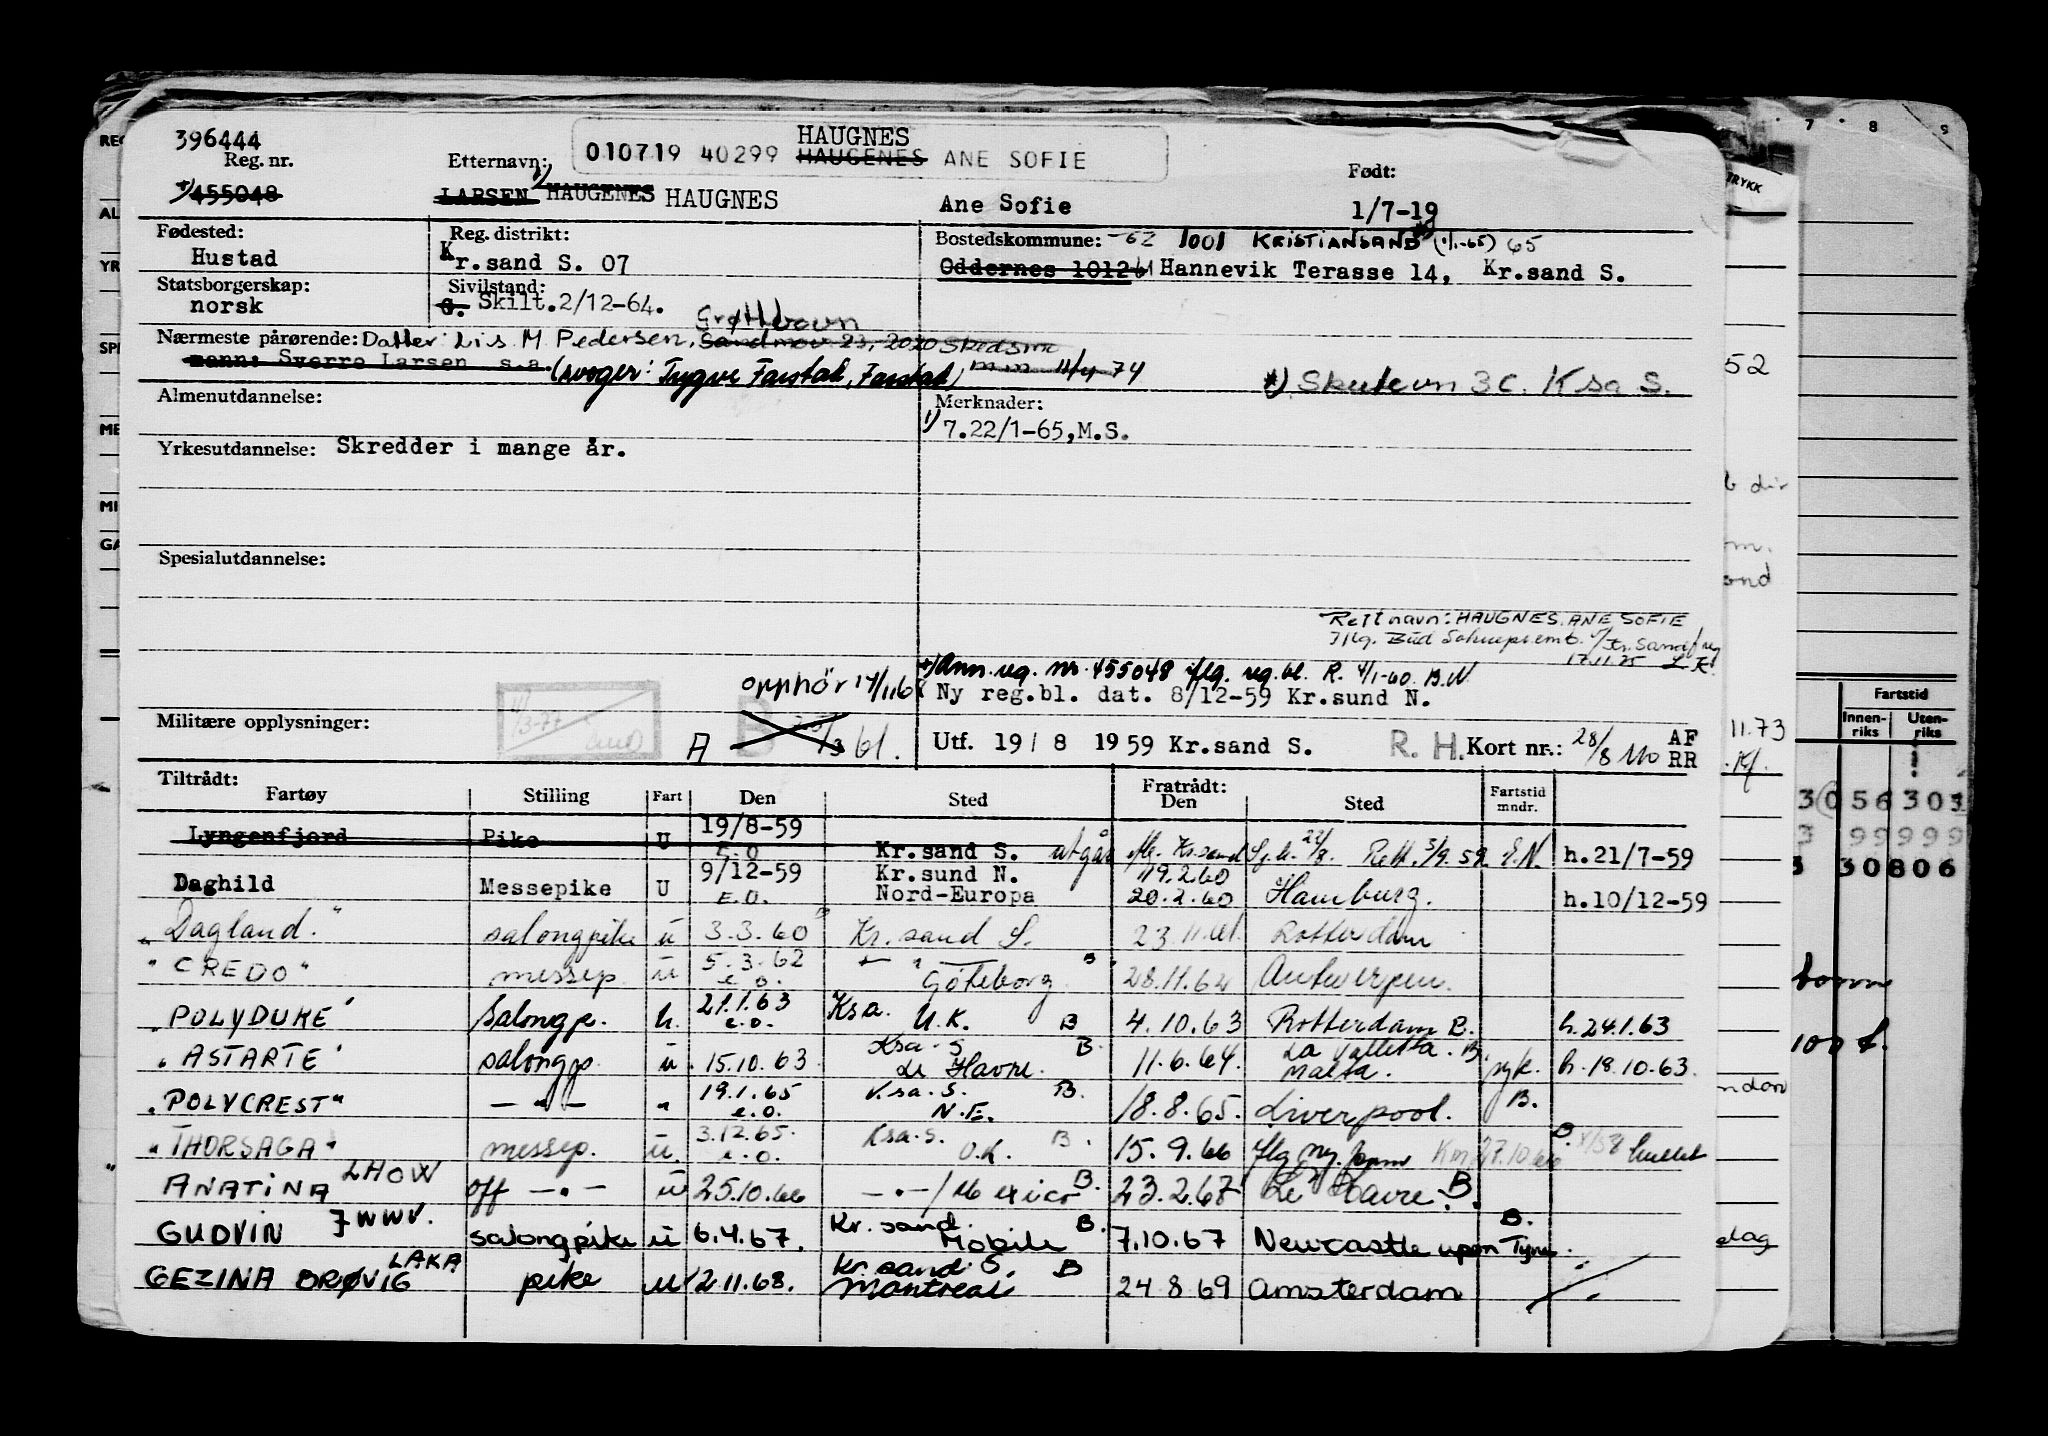 396444
Reg. nr.
455048
Etternavn:
010719 40299 HAUGENES ANE SOFIE
HAUGNES
LARSEN HAUGENES HAUGNES
Ane Sofie
Født:
1/7-19
Fødested:
Hustad
Reg. distrikt:
Kr.sand S. 07
Bostedskommune: -62 1001 KRISTIANSAND (1/1-65) 65
Oddernes 1012 Hannevik Terasse 14, Kr.sand S.
Statsborgerskap:
norsk
Sivilstand:
G. Skilt.2/12-64.
Nærmeste pårørende: Datter: Lis M Pedersen, 2020 Skedsmo
mann: Sverre Larsen s.a. (svoger: Yngve Farstad, Farstad) 11/4-74
Skutevn 3C. Ksa S.
Almenutdannelse:
Merknader:
1) 7.22/1-65, M.S.
Yrkesutdannelse: Skredder i mange år.
Spesialutdannelse:
Rett navn: HAUGNES, ANE SOFIE
17.11.75
Ann. reg. nr. 455048 iflg. reg.bl. R. 4/1-60 B.N
Ny reg.bl. dat. 8/12-59 Kr.sund N.
opphør
Militære opplysninger:
A B
Utf. 19/8 1959 Kr.sand S. R. H. Kort nr.: 28/8 AF RR
Tiltrådt:
Fartøy Stilling Fart Den Sted Fratrådt: Den Sted Fartstid mndr.
Lyngenfjord Pike U 19/8-59 E.O Kr.sand S. utgår Kr.sand 22/8. Rett. 3/9.59 h.21/7-59
Daghild Messepike U 9/12-59 E.O. Kr.sund N. Nord-Europa 119.2.60 20.2.60 Hamburg. h.10/12-59
"Dagland." salongpike u 3.3.60 Kr.sand S. 23.11.61. Rotterdam
"CREDO" messep. u 5.3.62 e.o. Göteborg B. 28.11.62 Antwerpen.
"POLYDUKE" Salongp. u. 21.1.63 e.o. Ksa. U.K. B 4.10.63 Rotterdam B. h.24.1.63
"ASTARTE" salongp. u. 15.10.63 Ksa. S Le Havre. B. 11.6.64. La Valletta. Malta. B. syk. h.18.10.63.
"POLYCREST" — " — " 19.1.65 e.o. K.sa.S. N.E. B. 18.8.65. Liverpool. B.
"THORSAGA" messep. u. 3.12.65. e.o. Ksa.S. B. 15.9.66 27.10.66
ANATINA LHOW off — " — u 25.10.66 — " — / Mexico B. 23.2.67 Le Havre. B.
GUDVIN JWWV. salongpike u 6.4.67. Kr.sand. Mobile B. 7.10.67 Newcastle upon Tyne. B.
GEZINA BRØVIG LAKA pike u 2.11.68. Kr.sand S. Montreal B 24 8 69 Amsterdam
TRYKK
7 8 9
52
11.73
Fartstid
Innen-
riks
Uten-
riks
30806
ndon
dag